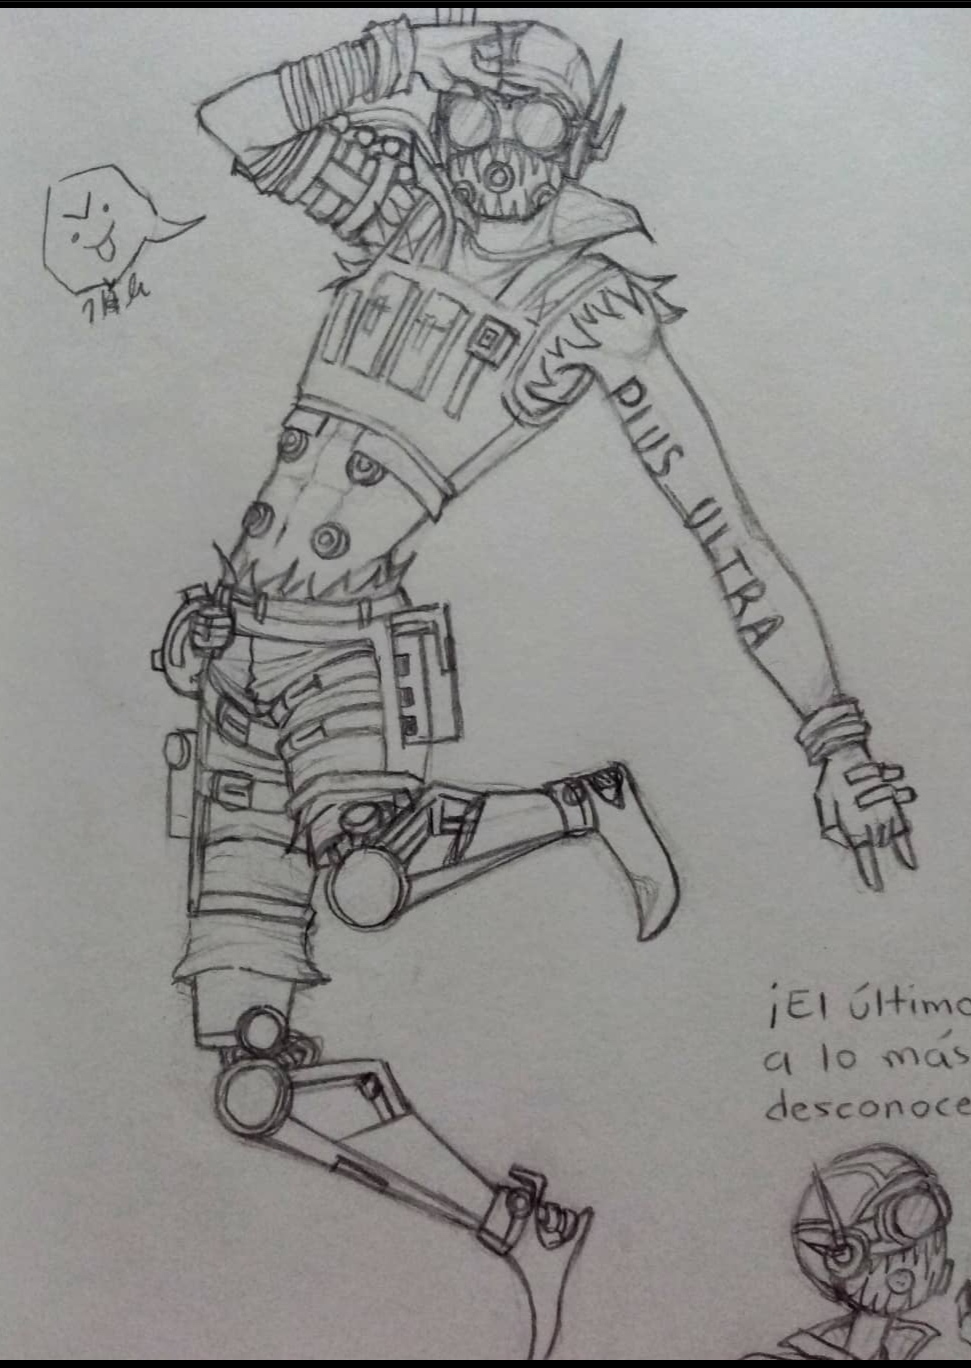 PLUS ULTRA
¡El último
a lo más
desconoce